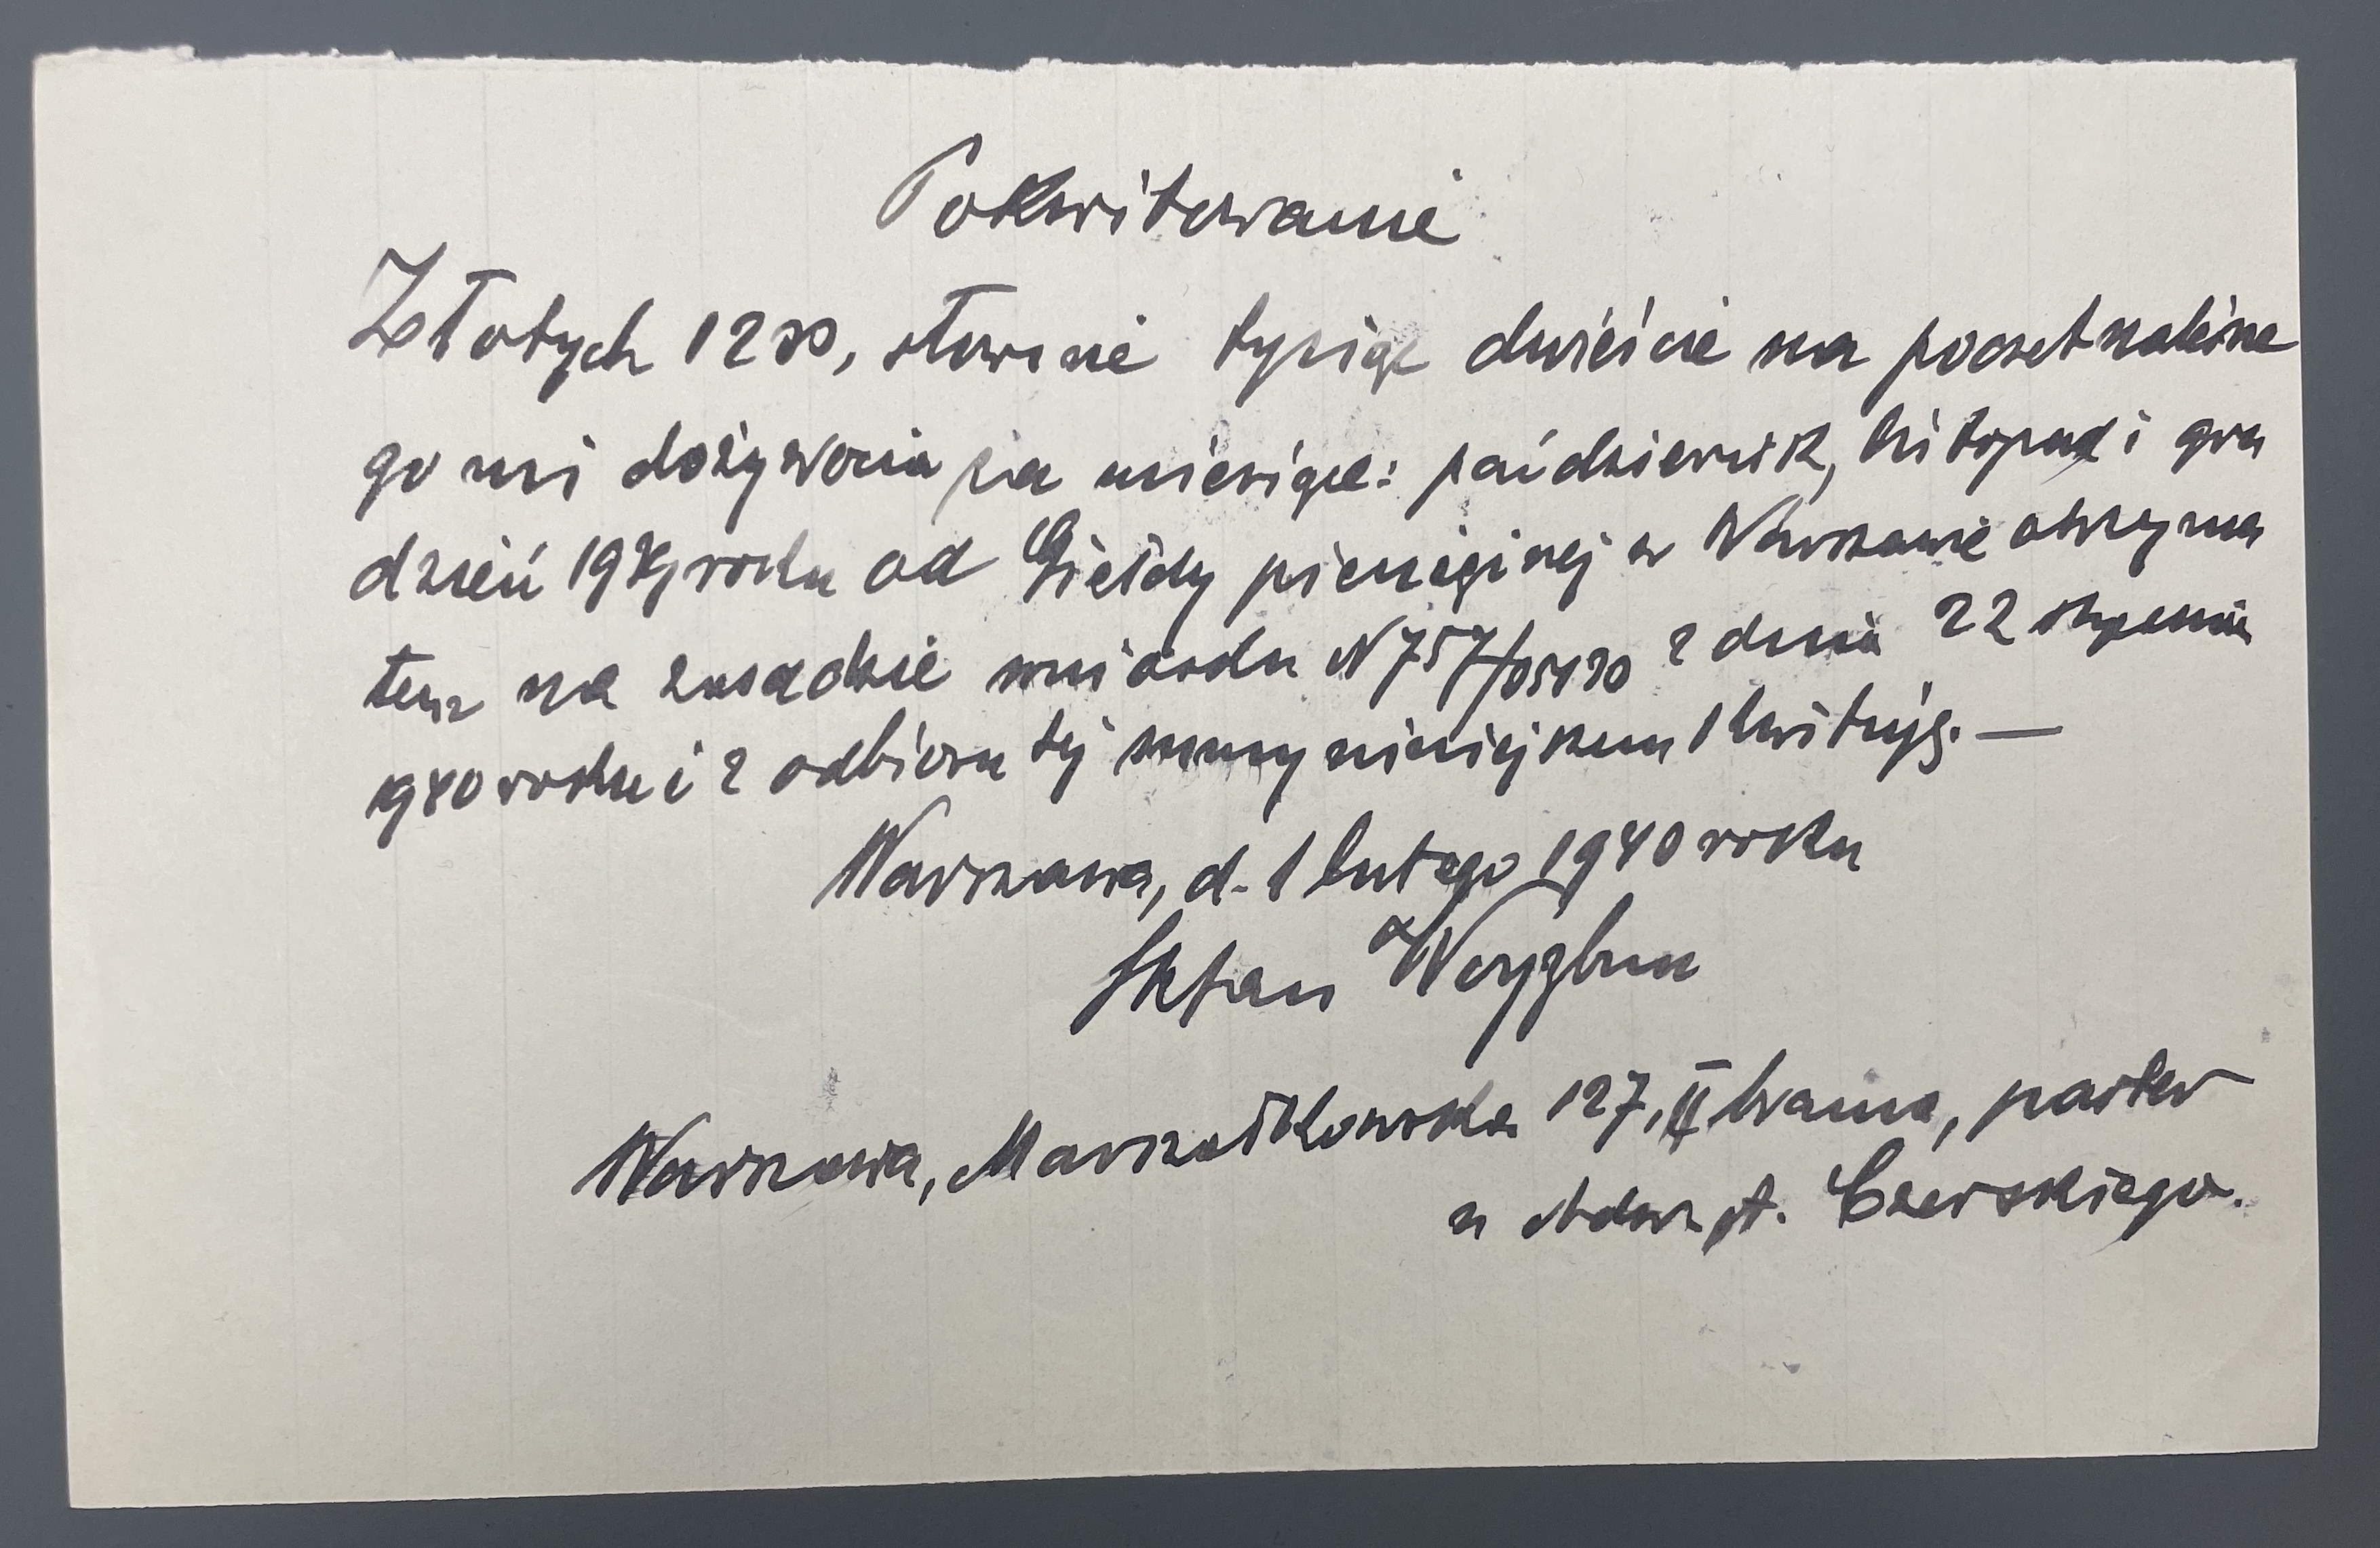 Pokwitowanie
Złotych 1200, słownie tysiąc dwieście na poczet należne
go mi dożywocia za miesiące: październik, listopad i gru
dzień 1939 roku od Giełdy pieniężnej w Warszawie otrzyma
łem na zasadzie wniosku N 757/ z dnia 22 stycznia
1940 roku i z odbioru tej sumy niniejszem kwituję. —
Warszawa, d. 1 lutego 1940 roku
Stefan
Warszawa, Marszałkowska 127, II brama, parter
u Adw. St. Czerskiego.